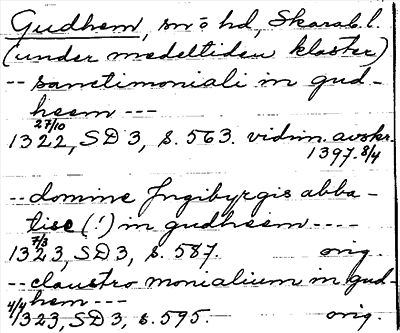 Gudhem, sn o hd, Skarab. l.
(under medeltiden kloster)
-- sanctimoniali in gud-
heem ---
27/10
1322, SD 3, s. 563. vidim. avskr.
1397 8/4
-- domine Jngibyrgis abba-
tisse (!) in gudheem ----
7/3
1323, SD 3, s. 587. orig.
-- claustro monialium in gud-
4/4 hem ---
1323, SD 3, s. 595. orig.